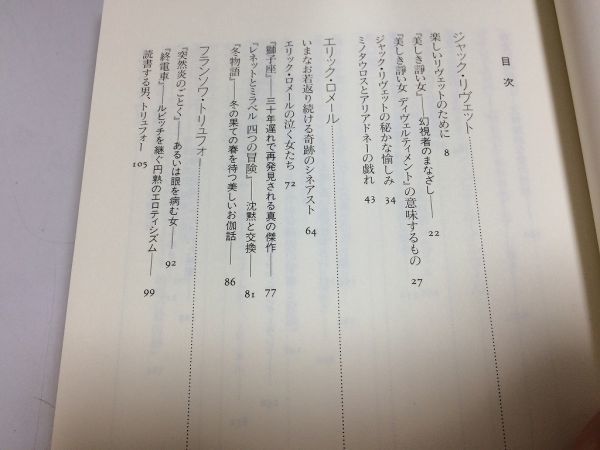 目次
ジャック・リヴェット
楽しいリヴェットのために 8
『美しき諍い女』——幻視者のまなざし—— 22
『美しき諍い女 ディヴェルティメント』の意味するもの 27
ジャック・リヴェットの秘かな愉しみ 34
ミノタウロスとアリアドネーの戯れ 43
エリック・ロメール
いまなお若返り続ける奇跡のシネアスト 64
エリック・ロメールの泣く女たち 72
『獅子座』——三十年遅れで再発見される真の傑作—— 77
『レネットとミラベル 四つの冒険』——沈黙と交換—— 81
『冬物語』——冬の果ての春を待つ美しいお伽話—— 86
フランソワ・トリュフォー
『突然炎のごとく』——あるいは眼を病む女—— 92
『終電車』——ルビッチを継ぐ円熟のエロティシズム—— 99
読書する男、トリュフォー 105